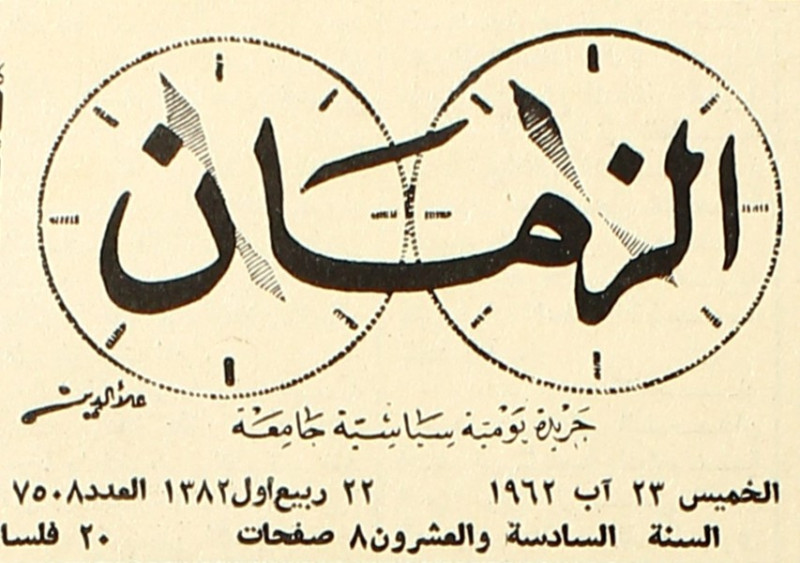 الزمان
علاءالدين
جَرِيْدَة يَوْمِيَّة سِيَاسِيَّة جَامِعَة
الخميس ٢٣ آب ١٩٦٢ ٢٢ ربيع اول ١٣٨٢ العدد ٧٥٠٨
السنة السادسة والعشرون ٨ صفحات ٢٠ فلسا